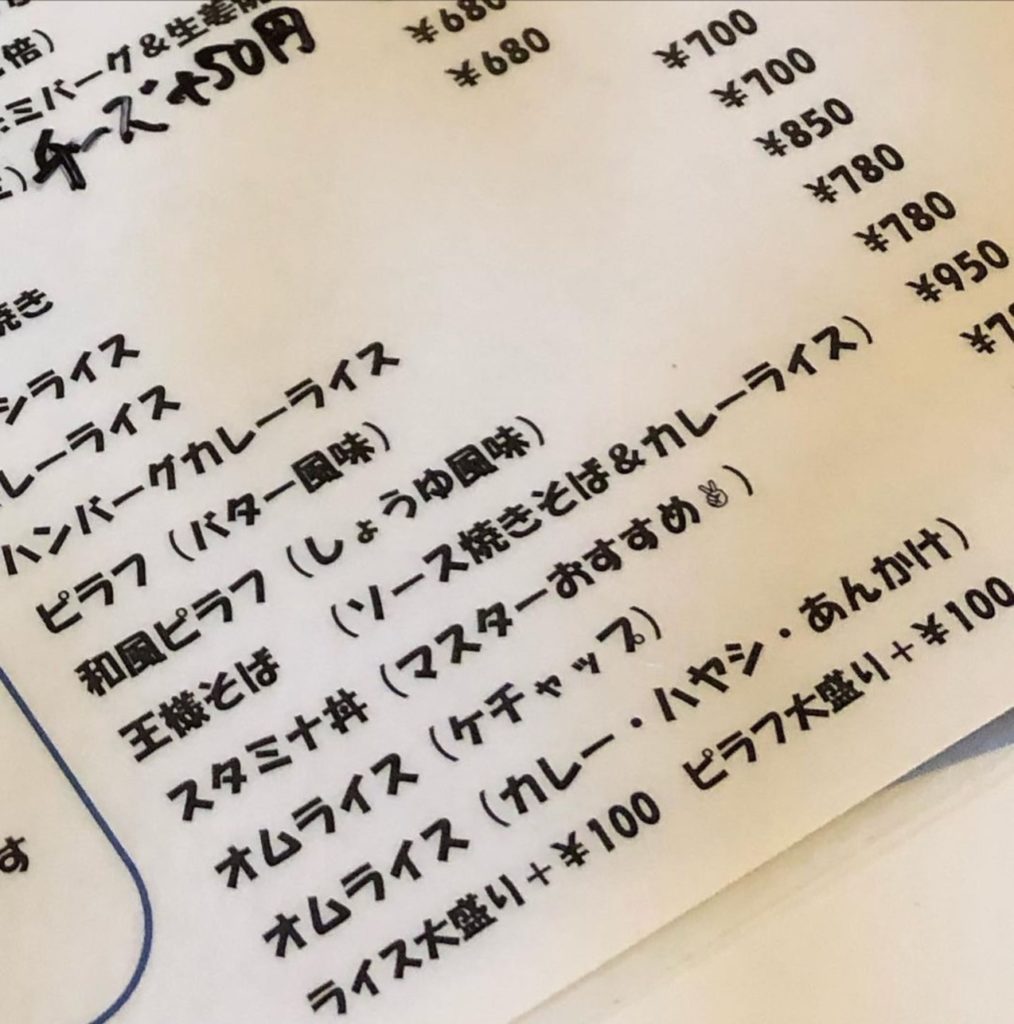 倍)
ミバーグ&生姜
チーズ+50円
¥680
焼き ¥680
シライス ¥700
レーライス ¥700
ハンバーグカレーライス ¥850
ピラフ（バター風味） ¥780
和風ピラフ（しょうゆ風味） ¥780
王様そば （ソース焼きそば&カレーライス） ¥950
スタミナ丼（マスターおすすめ✌） ¥7
オムライス（ケチャップ）
オムライス（カレー・ハヤシ・あんかけ）
ライス大盛り+¥100 ピラフ大盛り+¥100
す